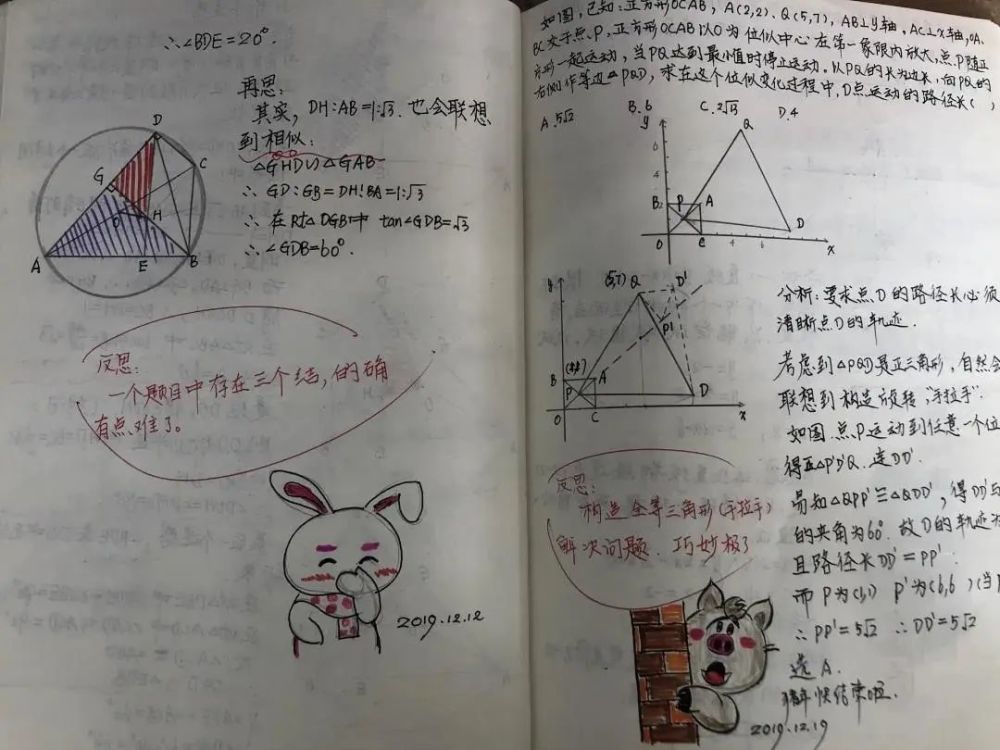 ∴∠BDE=20°.
再思:
其实, DH:AB=1:√3. 也会联想
到相似:
△GHD∽△GAB
∴ GD:GB=DH:BA=1:√3
∴ 在Rt△DGB中 tan∠GDB=√3
∴ ∠GDB=60°.
D
C
G
O
H
A
E
B
反思:
一个题目中存在三个结,的确
有点难了。
2019.12.12
如图,已知:正方形OCAB, A(2,2), Q(5,7), AB⊥y轴, AC⊥x轴, OA,
BC交于点P, 正方形OCAB以O为位似中心在第一象限内放大,点P随正
方形一起运动,当PQ达到最小值时停止运动。以PQ的长为边长,向PQ的
右侧作等边△PQD,求在这个位似变化过程中,D点运动的路径长( )
A.5√2
B.6
C.2√13
D.4
y
Q
B
2
P
A
D
O
C
4
6
x
y
(5,7)
Q
D'
P'
B
(2,2)
A
P
D
O
C
x
分析:要求点D的路径长必须
清晰点D的轨迹.
考虑到△PQD是正三角形,自然会
联想到构造旋转,"手拉手".
如图.点P运动到任意一个位
得正△P'D'Q.连DD'.
易知△QPP'≌△QDD',得DD'与
的夹角为60°.故D的轨迹为
且路径长DD'=PP'.
而P为(1,1) P'为(6,6)(当P
∴ PP'=5√2 ∴DD'=5√2
选A.
猪年快结束啦.
反思:
构造全等三角形(手拉手)
解决问题.巧妙极了
2019.12.19